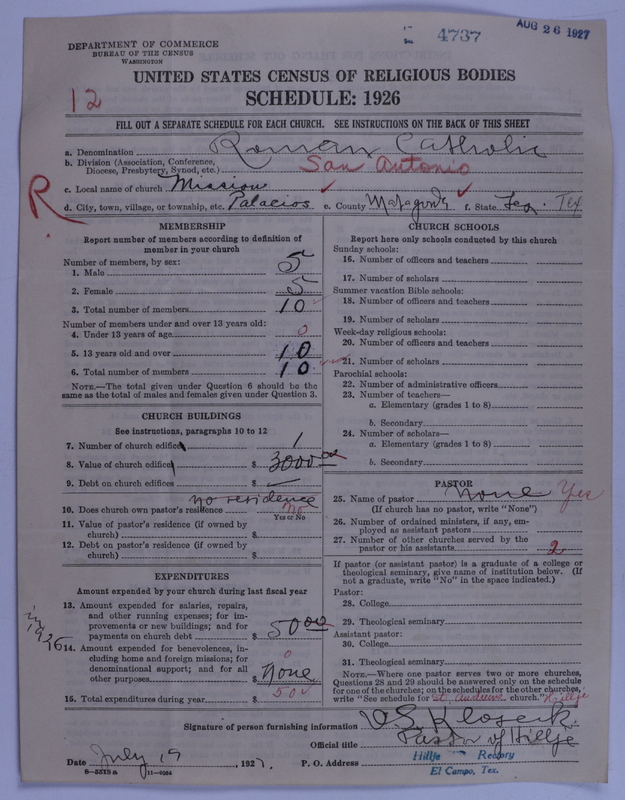 4737
AUG 26 1927
DEPARTMENT OF COMMERCE
BUREAU OF THE CENSUS
WASHINGTON
UNITED STATES CENSUS OF RELIGIOUS BODIES
12
SCHEDULE: 1926
FILL OUT A SEPARATE SCHEDULE FOR EACH CHURCH. SEE INSTRUCTIONS ON THE BACK OF THIS SHEET
a. Denomination Roman Catholic
b. Division (Association, Conference,
Diocese, Presbytery, Synod, etc.) San Antonio
R
c. Local name of church Mission
d. City, town, village, or township, etc. Palacios e. County Matagorda f. State Tex. Tex
MEMBERSHIP
Report number of members according to definition of
member in your church
Number of members, by sex:
1. Male 5
2. Female 5
3. Total number of members 10
Number of members under and over 13 years old:
4. Under 13 years of age 0
5. 13 years old and over 10
6. Total number of members 10
NOTE.—The total given under Question 6 should be the
same as the total of males and females given under Question 3.
CHURCH BUILDINGS
See instructions, paragraphs 10 to 12
7. Number of church edifices 1
8. Value of church edifices $ 3000.00
9. Debt on church edifices $
no residence
10. Does church own pastor's residence No
Yes or No
11. Value of pastor's residence (if owned by
church) $
12. Debt on pastor's residence (if owned by
church) $
EXPENDITURES
Amount expended by your church during last fiscal year
in 1926
13. Amount expended for salaries, repairs,
and other running expenses; for im-
provements or new buildings; and for
payments on church debt $ 50.00
14. Amount expended for benevolences, in-
cluding home and foreign missions; for
denominational support; and for all
other purposes $ None 0
15. Total expenditures during year $ 50
CHURCH SCHOOLS
Report here only schools conducted by this church
Sunday schools:
16. Number of officers and teachers
17. Number of scholars
Summer vacation Bible schools:
18. Number of officers and teachers
19. Number of scholars
Week-day religious schools:
20. Number of officers and teachers
21. Number of scholars
Parochial schools:
22. Number of administrative officers
23. Number of teachers—
a. Elementary (grades 1 to 8)
b. Secondary
24. Number of scholars—
a. Elementary (grades 1 to 8)
b. Secondary
PASTOR
25. Name of pastor None Yes
(If church has no pastor, write "None")
26. Number of ordained ministers, if any, em-
ployed as assistant pastors
27. Number of other churches served by the
pastor or his assistants 2
If pastor (or assistant pastor) is a graduate of a college or
theological seminary, give name of institution below. (If
not a graduate, write "No" in the space indicated.)
Pastor:
28. College
29. Theological seminary
Assistant pastor:
30. College
31. Theological seminary
NOTE.—Where one pastor serves two or more churches,
Questions 28 and 29 should be answered only on the schedule
for one of the churches; on the schedules for the other churches,
write "See schedule for St. Andrews church." Hillje
Signature of person furnishing information
Official title Pastor of Hillje
Date July 19, 1927. P. O. Address Hillje Rectory
El Campo, Tex.
8-5513a 11-9054